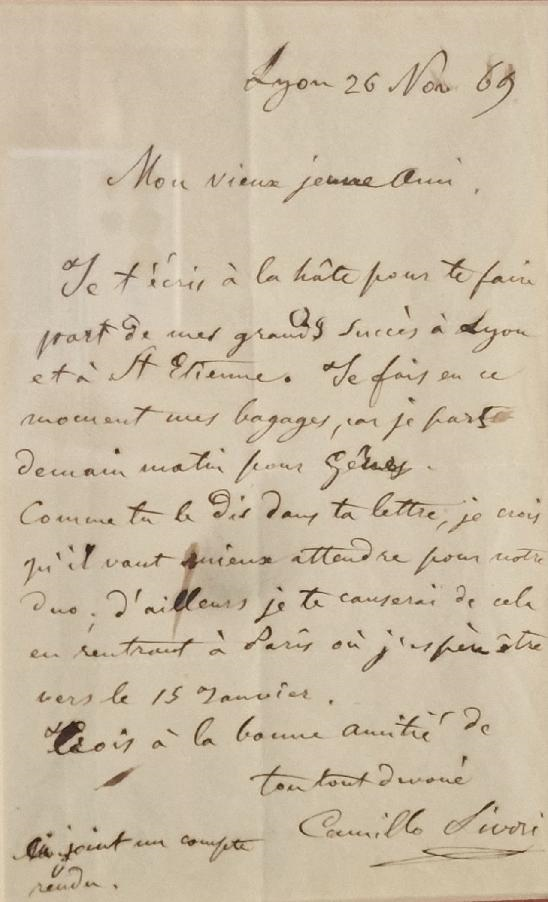 Lyon 26 Nov 69
Mon vieux jeune Ami,
Je t'écris à la hâte pour te faire
part de mes grands succès à Lyon
et à St Etienne. Je fais en ce
moment mes bagages, car je pars
demain matin pour Gênes.
Comme tu le dis dans ta lettre, je crois
qu'il vaut mieux attendre pour notre
duo; d'ailleurs je te causerai de cela
en rentrant à Paris où j'espère être
vers le 15 Janvier.
Crois à la bonne amitié de
ton tout dévoué
Camillo Sivori
Ci joint un compte
rendu.